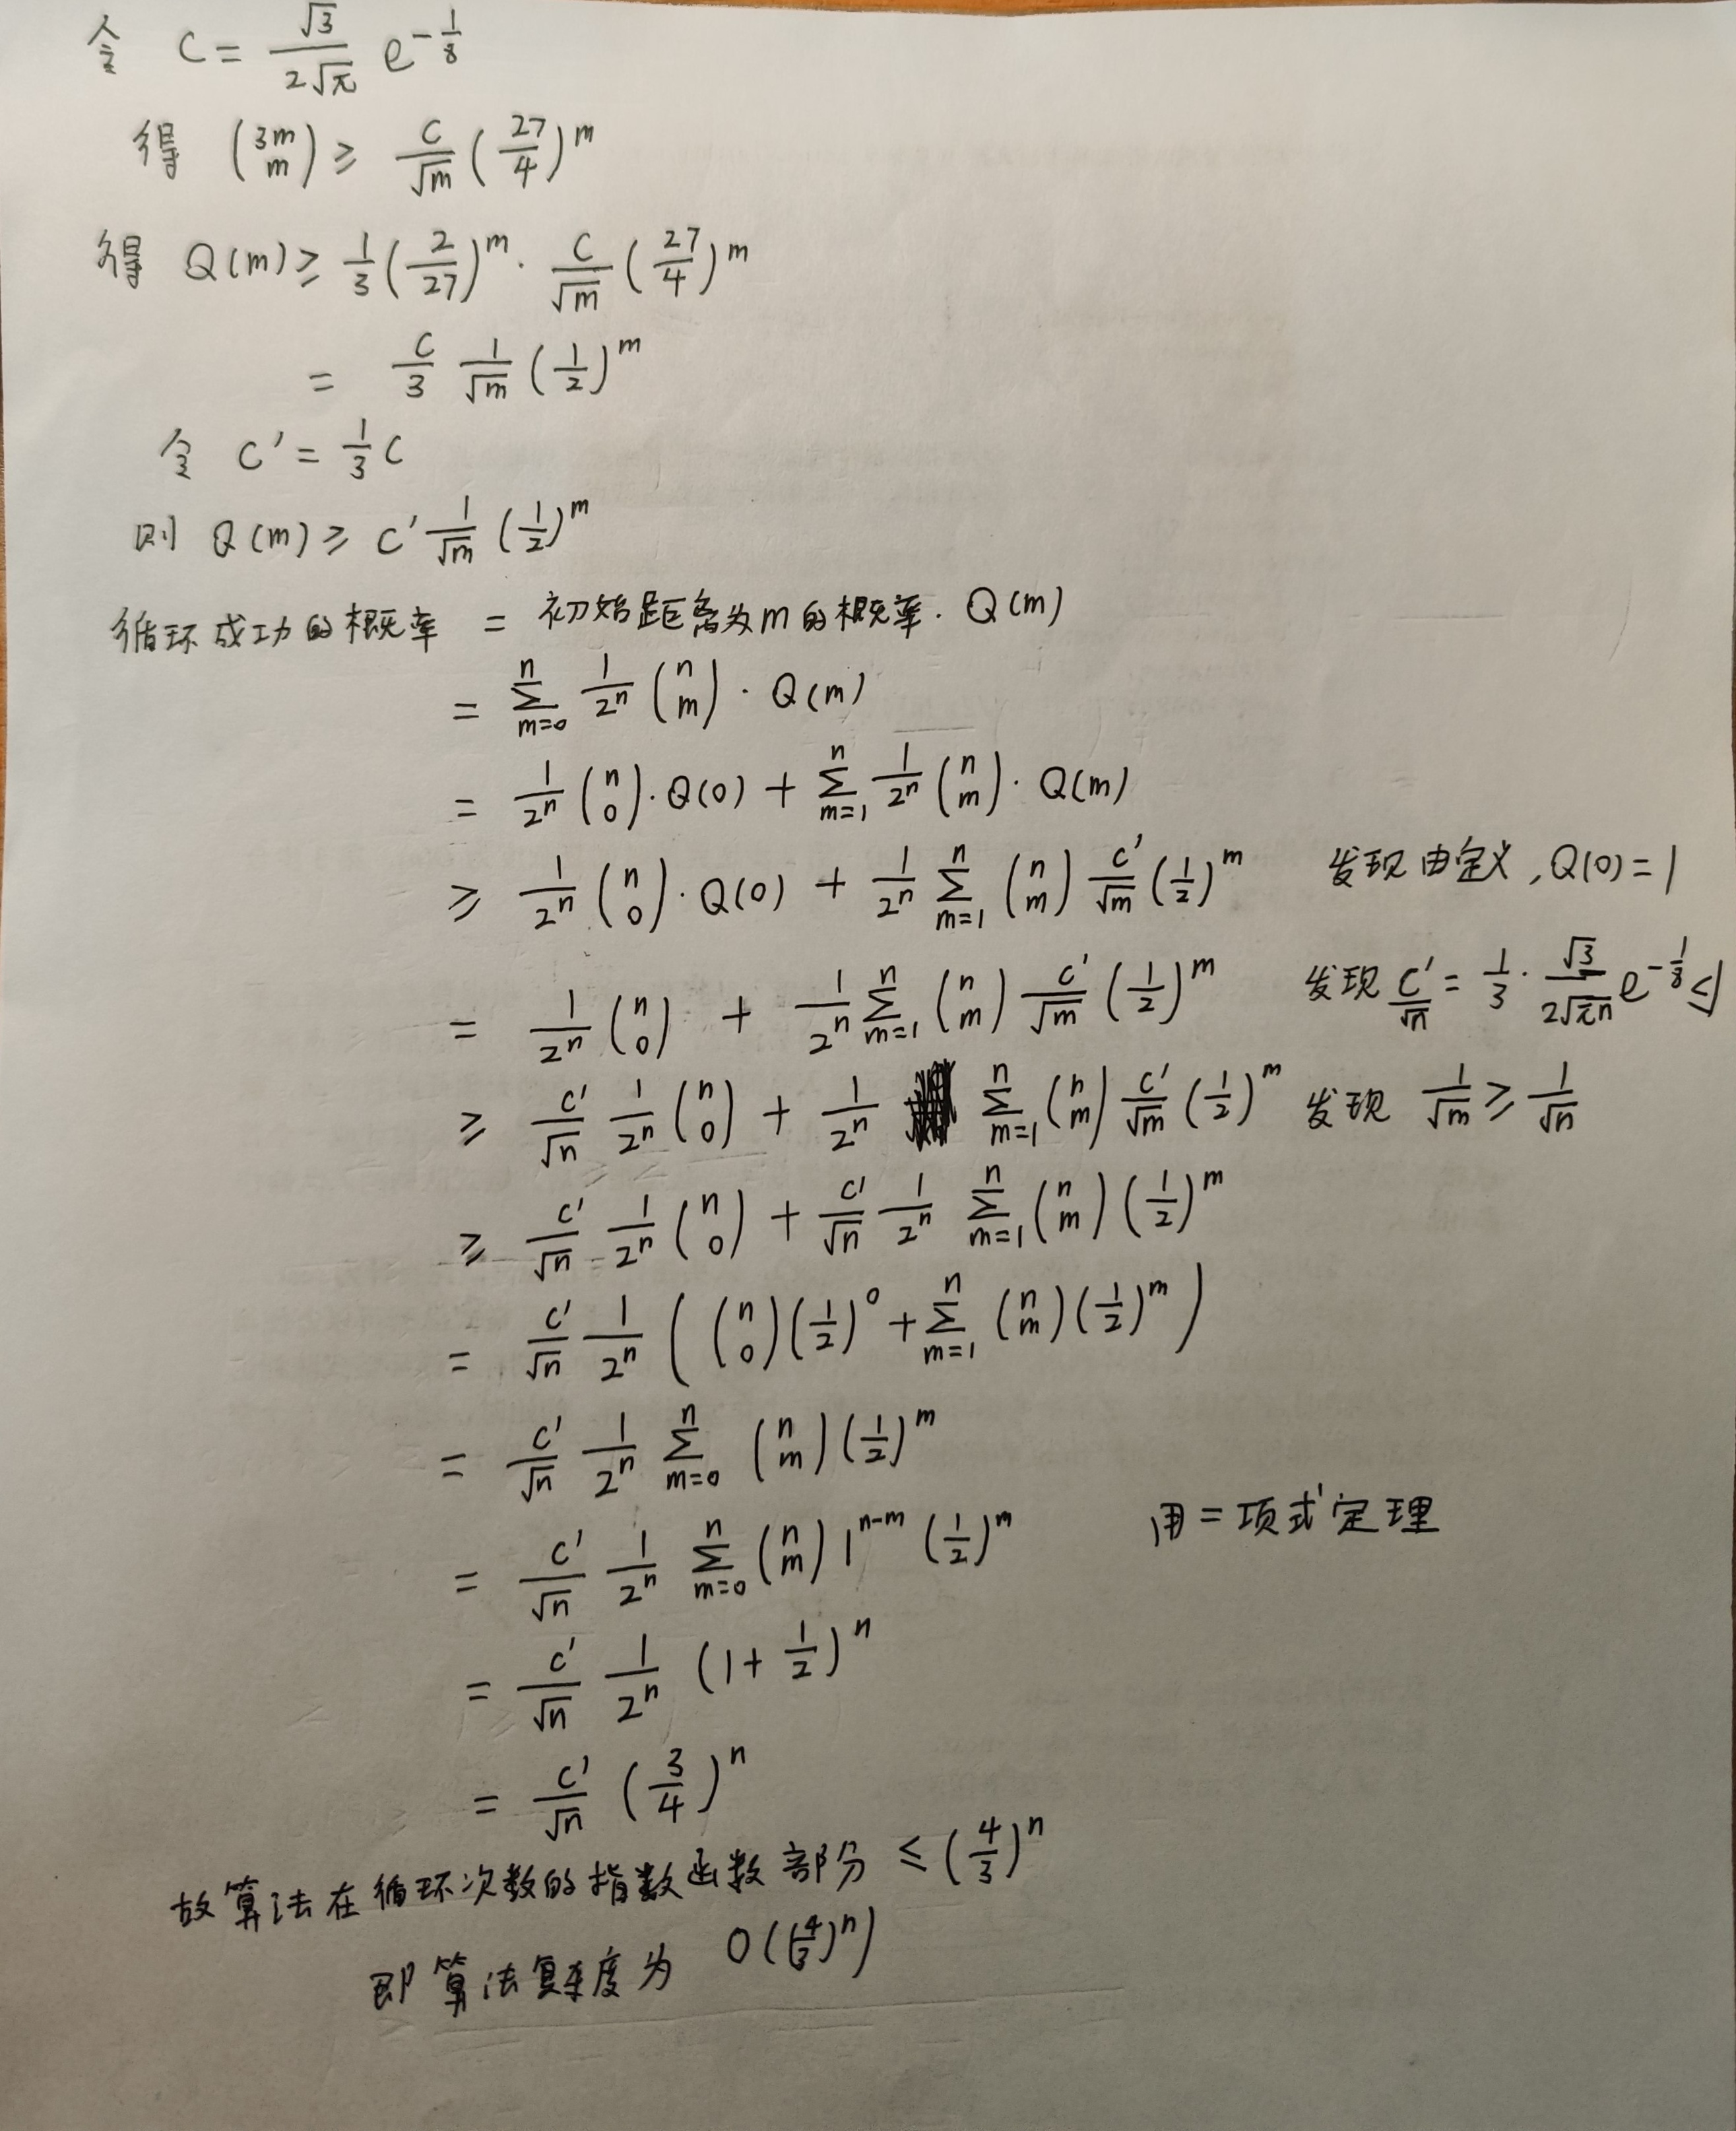 令 C = \frac{\sqrt{3}}{2\sqrt{π}} e^{-\frac{1}{8}}
得 \binom{3m}{m} ≥ \frac{C}{\sqrt{m}} (\frac{27}{4})^m
得 Q(m) ≥ \frac{1}{3} (\frac{2}{27})^m · \frac{C}{\sqrt{m}} (\frac{27}{4})^m
= \frac{C}{3} \frac{1}{\sqrt{m}} (\frac{1}{2})^m
令 C' = \frac{1}{3} C
则 Q(m) ≥ C' \frac{1}{\sqrt{m}} (\frac{1}{2})^m
循环成功的概率 = 初始距离为m的概率 · Q(m)
= \sum_{m=0}^{n} \frac{1}{2^n} \binom{n}{m} · Q(m)
= \frac{1}{2^n} \binom{n}{0} · Q(0) + \sum_{m=1}^{n} \frac{1}{2^n} \binom{n}{m} · Q(m)
≥ \frac{1}{2^n} \binom{n}{0} · Q(0) + \frac{1}{2^n} \sum_{m=1}^{n} \binom{n}{m} \frac{C'}{\sqrt{m}} (\frac{1}{2})^m 发现由定义, Q(0) = 1
= \frac{1}{2^n} \binom{n}{0} + \frac{1}{2^n} \sum_{m=1}^{n} \binom{n}{m} \frac{C'}{\sqrt{m}} (\frac{1}{2})^m 发现 \frac{C'}{\sqrt{n}} = \frac{1}{3} · \frac{\sqrt{3}}{2\sqrt{πn}} e^{-\frac{1}{8}} ≤ 1
≥ \frac{C'}{\sqrt{n}} \frac{1}{2^n} \binom{n}{0} + \frac{1}{2^n} \sum_{m=1}^{n} \binom{n}{m} \frac{C'}{\sqrt{m}} (\frac{1}{2})^m 发现 \frac{1}{\sqrt{m}} ≥ \frac{1}{\sqrt{n}}
≥ \frac{C'}{\sqrt{n}} \frac{1}{2^n} \binom{n}{0} + \frac{C'}{\sqrt{n}} \frac{1}{2^n} \sum_{m=1}^{n} \binom{n}{m} (\frac{1}{2})^m
= \frac{C'}{\sqrt{n}} \frac{1}{2^n} ( \binom{n}{0} (\frac{1}{2})^0 + \sum_{m=1}^{n} \binom{n}{m} (\frac{1}{2})^m )
= \frac{C'}{\sqrt{n}} \frac{1}{2^n} \sum_{m=0}^{n} \binom{n}{m} (\frac{1}{2})^m
= \frac{C'}{\sqrt{n}} \frac{1}{2^n} \sum_{m=0}^{n} \binom{n}{m} 1^{n-m} (\frac{1}{2})^m 用二项式定理
= \frac{C'}{\sqrt{n}} \frac{1}{2^n} (1 + \frac{1}{2})^n
= \frac{C'}{\sqrt{n}} (\frac{3}{4})^n
故算法在循环次数的指数函数部分 ≤ (\frac{4}{3})^n
即算法复杂度为 O((\frac{4}{3})^n)